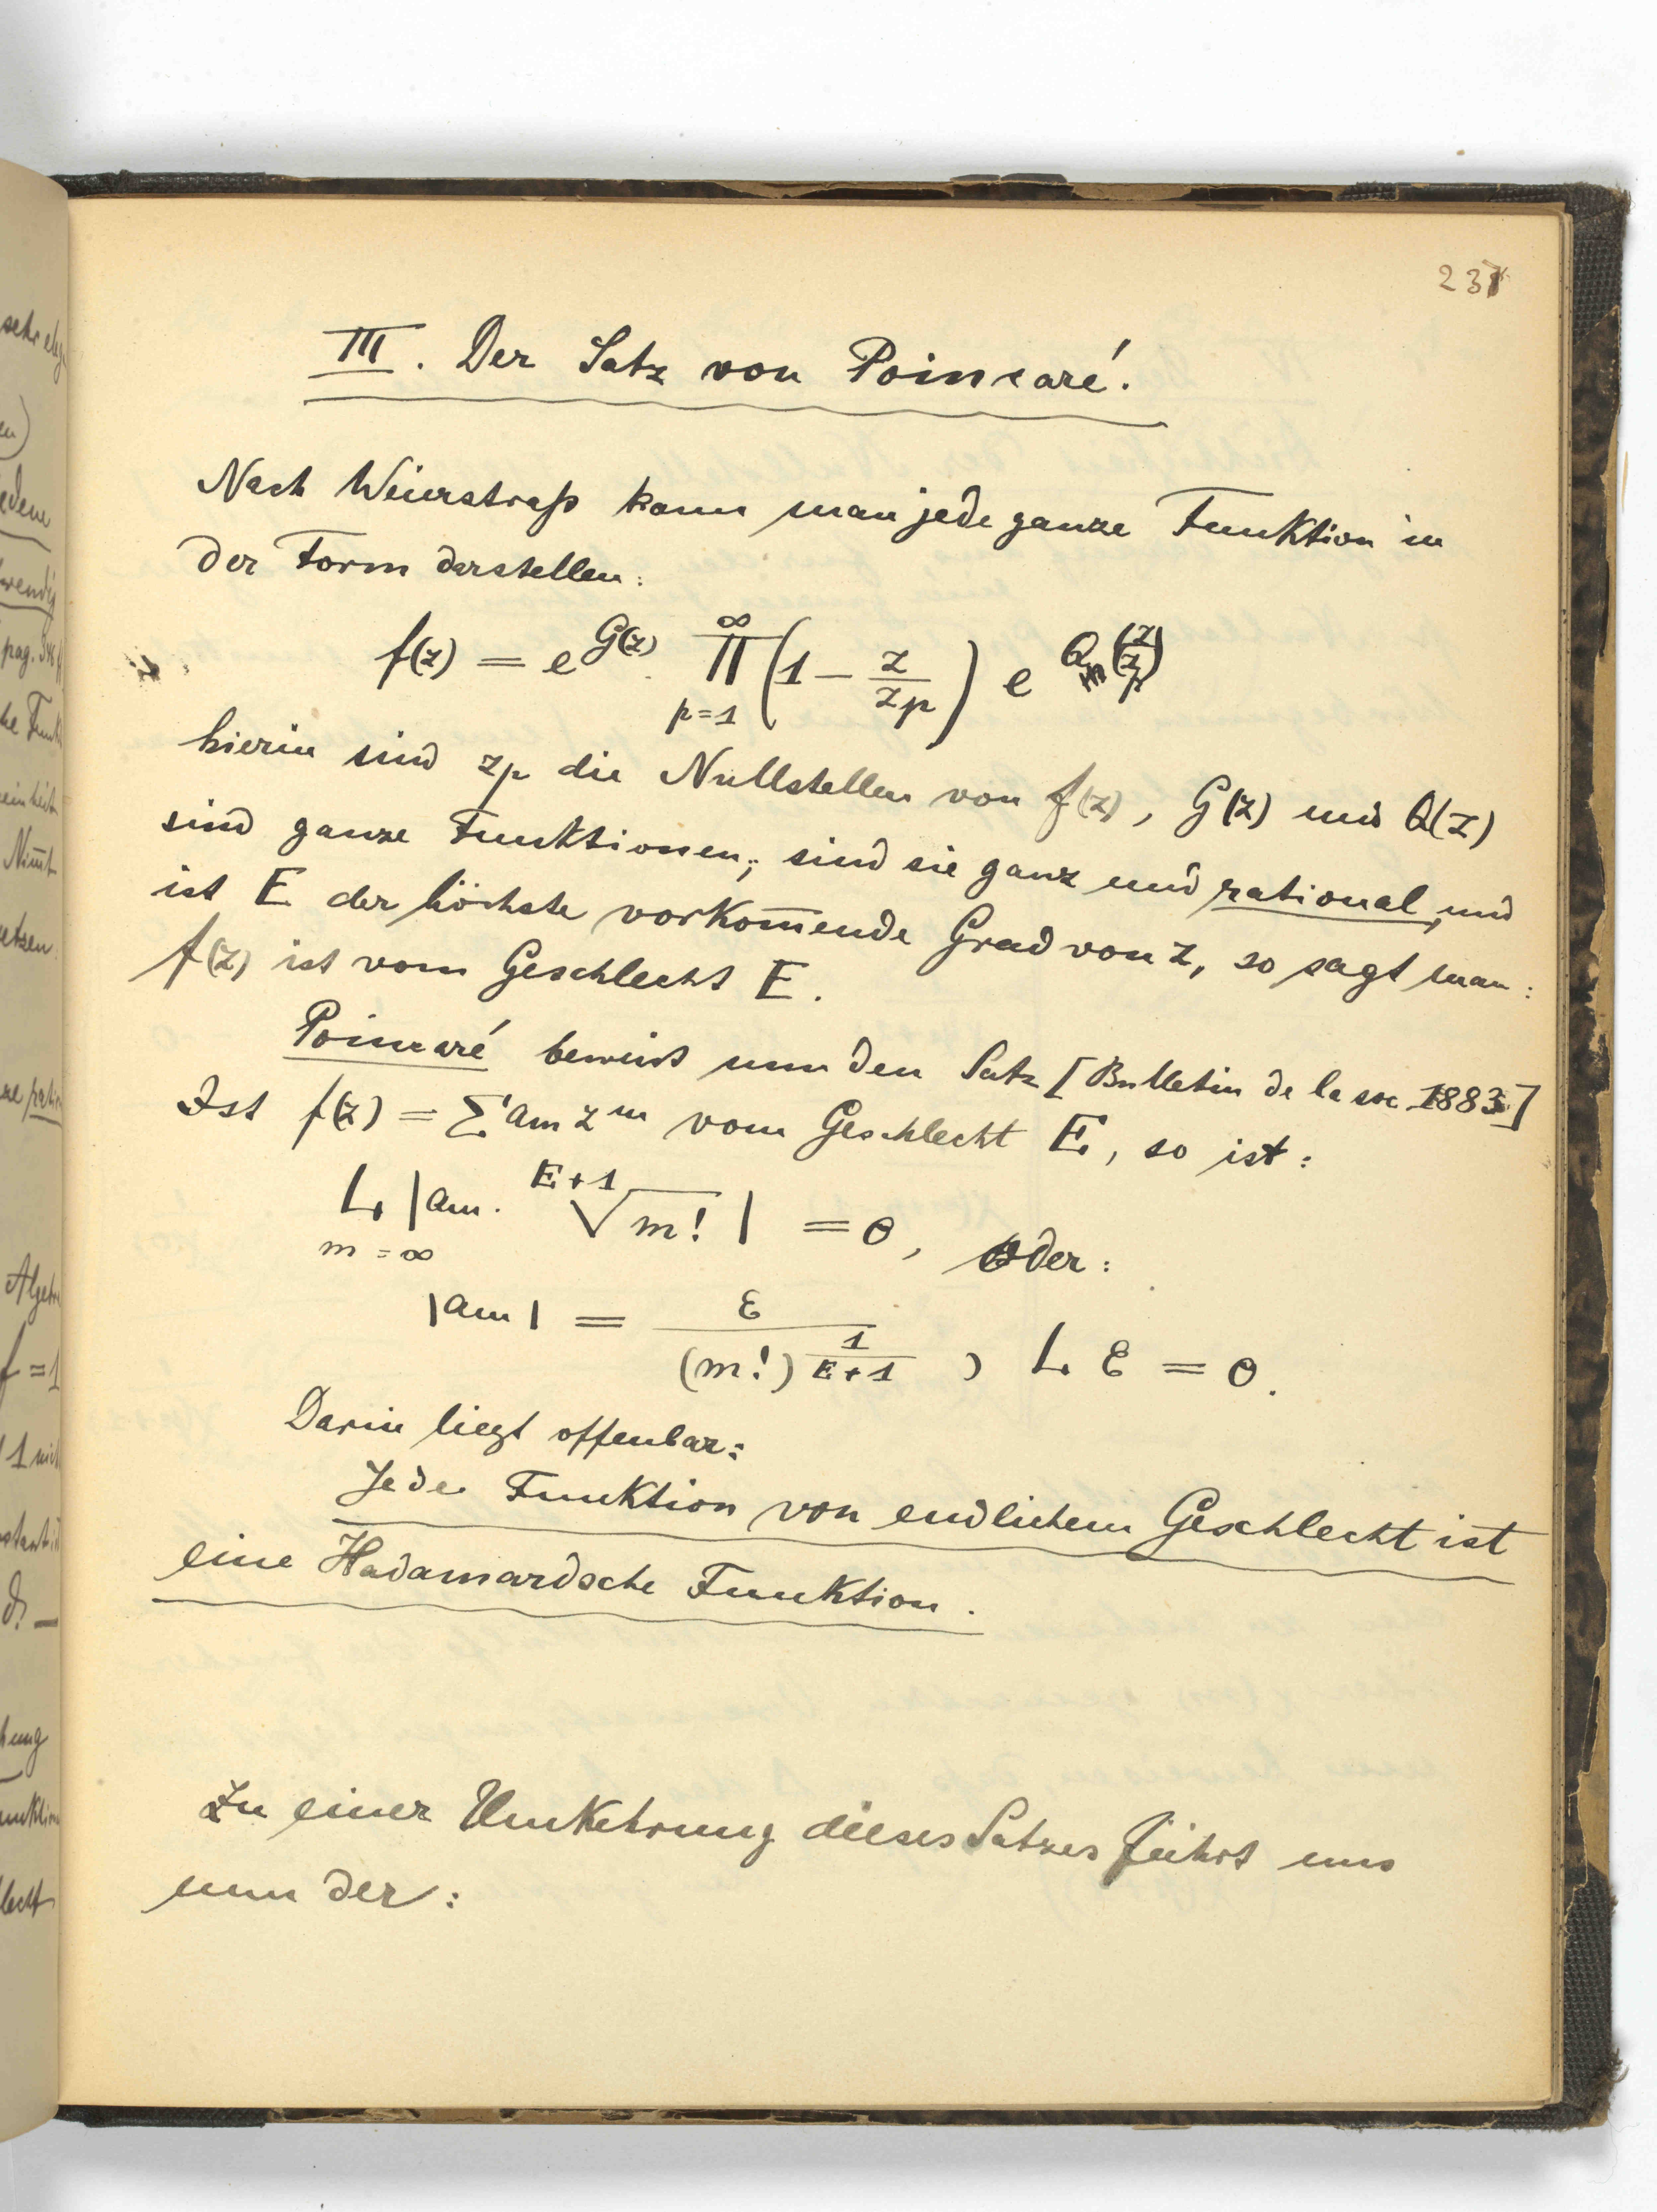 237
III. Der Satz von Poincaré.
Nach Weierstraß kann man jede ganze Funktion in
der Form darstellen:
f(z) = e^{G(z)} ∏_{p=1}^{∞} (1 − z/z_p) e^{Q(z/z_p)}
hierin sind z_p die Nullstellen von f(z), G(z) und Q(z)
sind ganze Funktionen; sind sie ganz und rational, und
ist E der höchste vorkom̅ende Grad von z, so sagt man:
f(z) ist vom Geschlecht E.
Poincaré beweist nun den Satz [Bulletin de la soc. 1883]
Ist f(z) = Σ a_m z^m vom Geschlecht E, so ist:
L_{m=∞} |a_m · \sqrt[E+1]{m!}| = 0, oder:
|a_m| = ε / (m!)^{1/(E+1)} , L ε = 0.
Darin liegt offenbar:
Jede Funktion von endlichem Geschlecht ist
eine Hadamardsche Funktion.
Zu einer Umkehrung dieses Satzes führt uns
nun der: